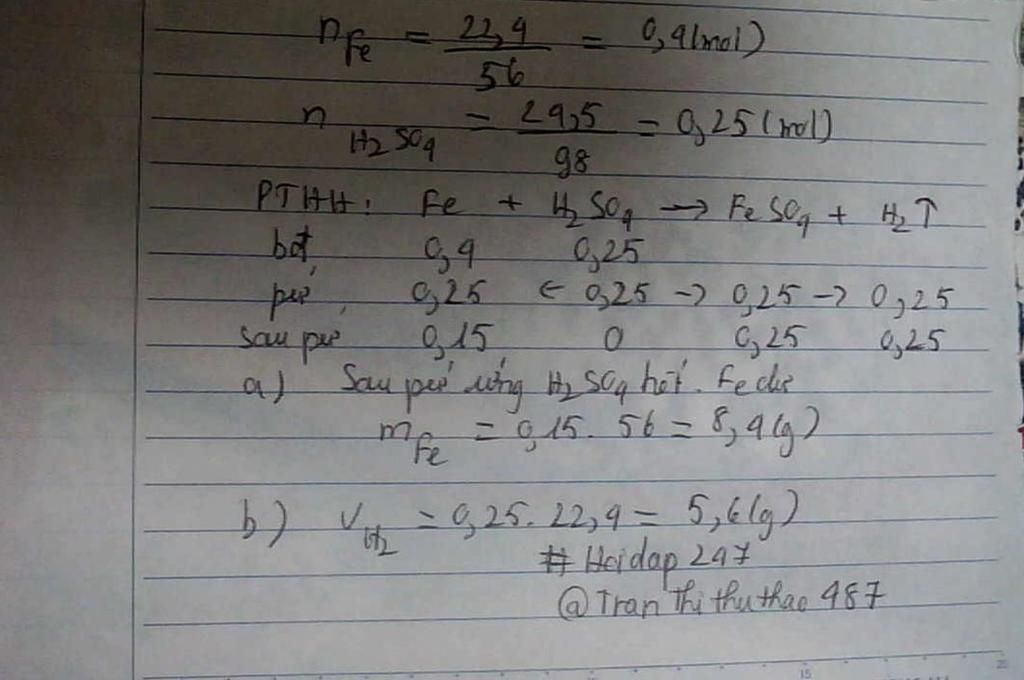 n Fe = 22,4/56 = 0,4 (mol)
n H2SO4 = 24,5/98 = 0,25 (mol)
PTHH: Fe + H2SO4 → FeSO4 + H2↑
bđ 0,4 0,25
pứ 0,25 ← 0,25 → 0,25 → 0,25
sau pứ 0,15 0 0,25 0,25
a) Sau pứ ứng H2SO4 hết. Fe dư
m Fe = 0,15. 56 = 8,4(g)
b) V H2 = 0,25. 22,4 = 5,6(g)
# Hoidap 247
@Tran Thi thu thao 487
15